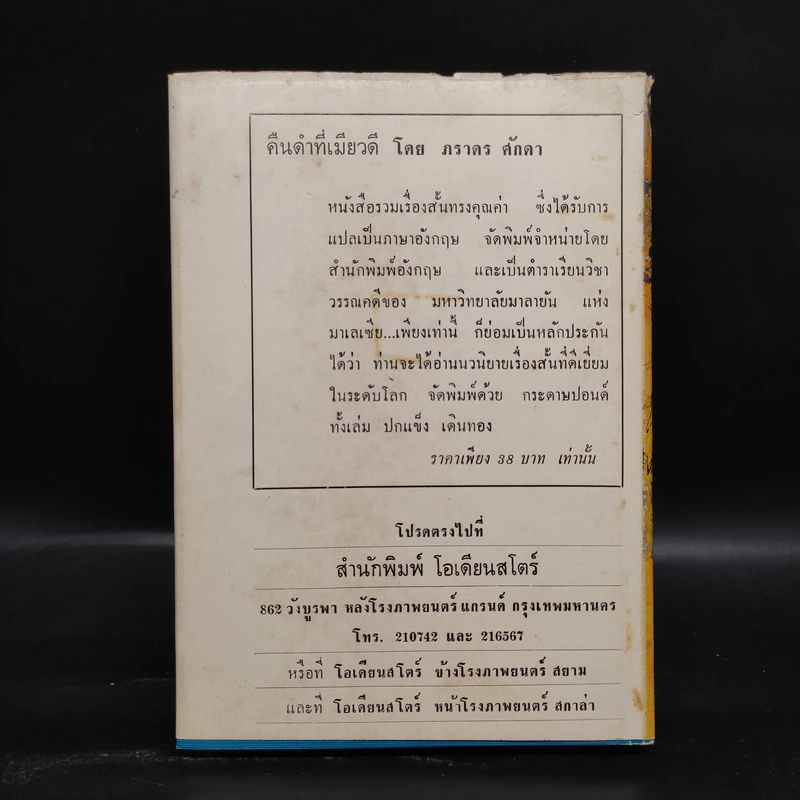 คืนดำที่เมียวดี โดย ภราดร ศักดา
หนังสือรวมเรื่องสั้นทรงคุณค่า ซึ่งได้รับการ
แปลเป็นภาษาอังกฤษ จัดพิมพ์จำหน่ายโดย
สำนักพิมพ์อังกฤษ และเป็นตำราเรียนวิชา
วรรณคดีของ มหาวิทยาลัยมาลายัน แห่ง
มาเลเซีย...เพียงเท่านี้ ก็ย่อมเป็นหลักประกัน
ได้ว่า ท่านจะได้อ่านนวนิยายเรื่องสั้นที่ดีเยี่ยม
ในระดับโลก จัดพิมพ์ด้วย กระดาษปอนด์
ทั้งเล่ม ปกแข็ง เดินทอง
ราคาเพียง 38 บาท เท่านั้น
โปรดตรงไปที่
สำนักพิมพ์ โอเดียนสโตร์
862 วังบูรพา หลังโรงภาพยนตร์แกรนด์ กรุงเทพมหานคร
โทร. 210742 และ 216567
หรือที่ โอเดียนสโตร์ ข้างโรงภาพยนตร์ สยาม
และที่ โอเดียนสโตร์ หน้าโรงภาพยนตร์ สกาล่า